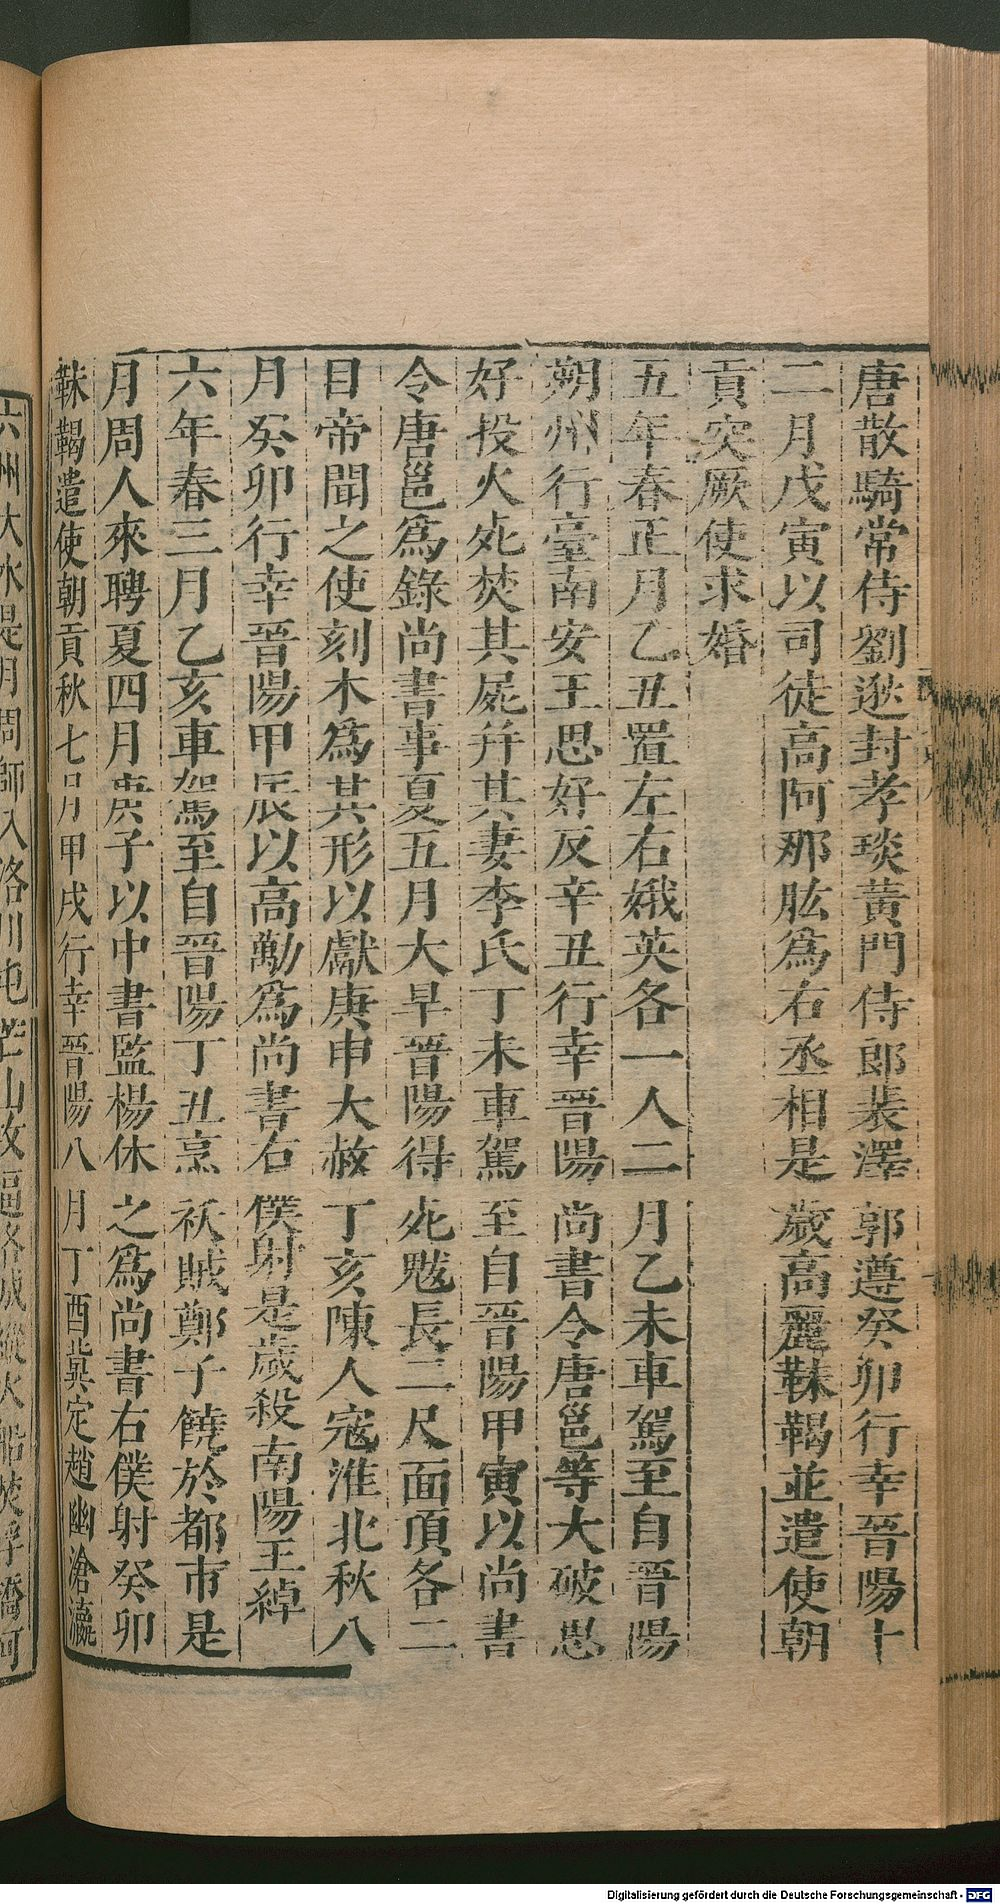 唐散騎常侍劉逖封孝琰黃門侍郎裴澤郭遵癸卯行幸晉陽十
二月戊寅以司徒高阿那肱為右丞相是歲高麗靺鞨並遣使朝
貢突厥使求婚
五年春正月乙丑置左右娥英各一人二月乙未車駕至自晉陽
朔州行臺南安王思好反辛丑行幸晉陽尚書令唐邕等大破思
好投火死焚其屍幷其妻李氏丁未車駕至自晉陽甲寅以尚書
令唐邕爲錄尚書事夏五月大旱晉陽得死魃長二尺面頂各二
目帝聞之使刻木爲其形以獻庚申大赦丁亥陳人寇淮北秋八
月癸卯行幸晉陽甲辰以高勱爲尚書右僕射是歲殺南陽王綽
六年春三月乙亥車駕至自晉陽丁丑烹祅賊鄭子饒於都市是
月周人來聘夏四月庚子以中書監楊休之爲尚書右僕射癸卯
靺鞨遣使朝貢秋七月甲戌行幸晉陽八月丁酉冀定趙幽滄瀛
六州大水是月周師入洛川屯芒山攻逼洛城縱火船焚浮橋河
Digitalisierung gefördert durch die Deutsche Forschungsgemeinschaft - DFG